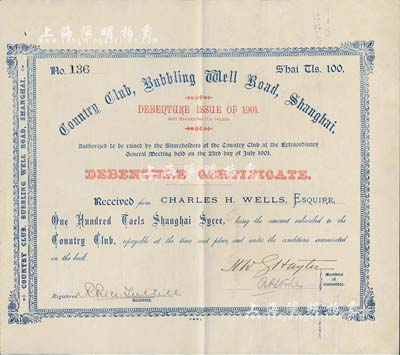 上海陽明拍賣
No. 136
Shai Tls. 100.
Country Club, Bubbling Well Road, Shanghai.
DEBENTURE ISSUE OF 1901.
Authorized to be raised by the Shareholders of the Country Club at the Extraordinary
General Meeting held on the 23rd day of July 1901.
DEBENTURE CERTIFICATE.
Received from CHARLES H. WELLS, ESQUIRE,
One Hundred Taels Shanghai Sycee, being the amount subscribed to the
Country Club, repayable at the time and place and under the conditions enumerated
on the back.
Members
of
Committee.
Registered
Secretary.
COUNTRY CLUB, BUBBLING WELL ROAD, SHANGHAI.